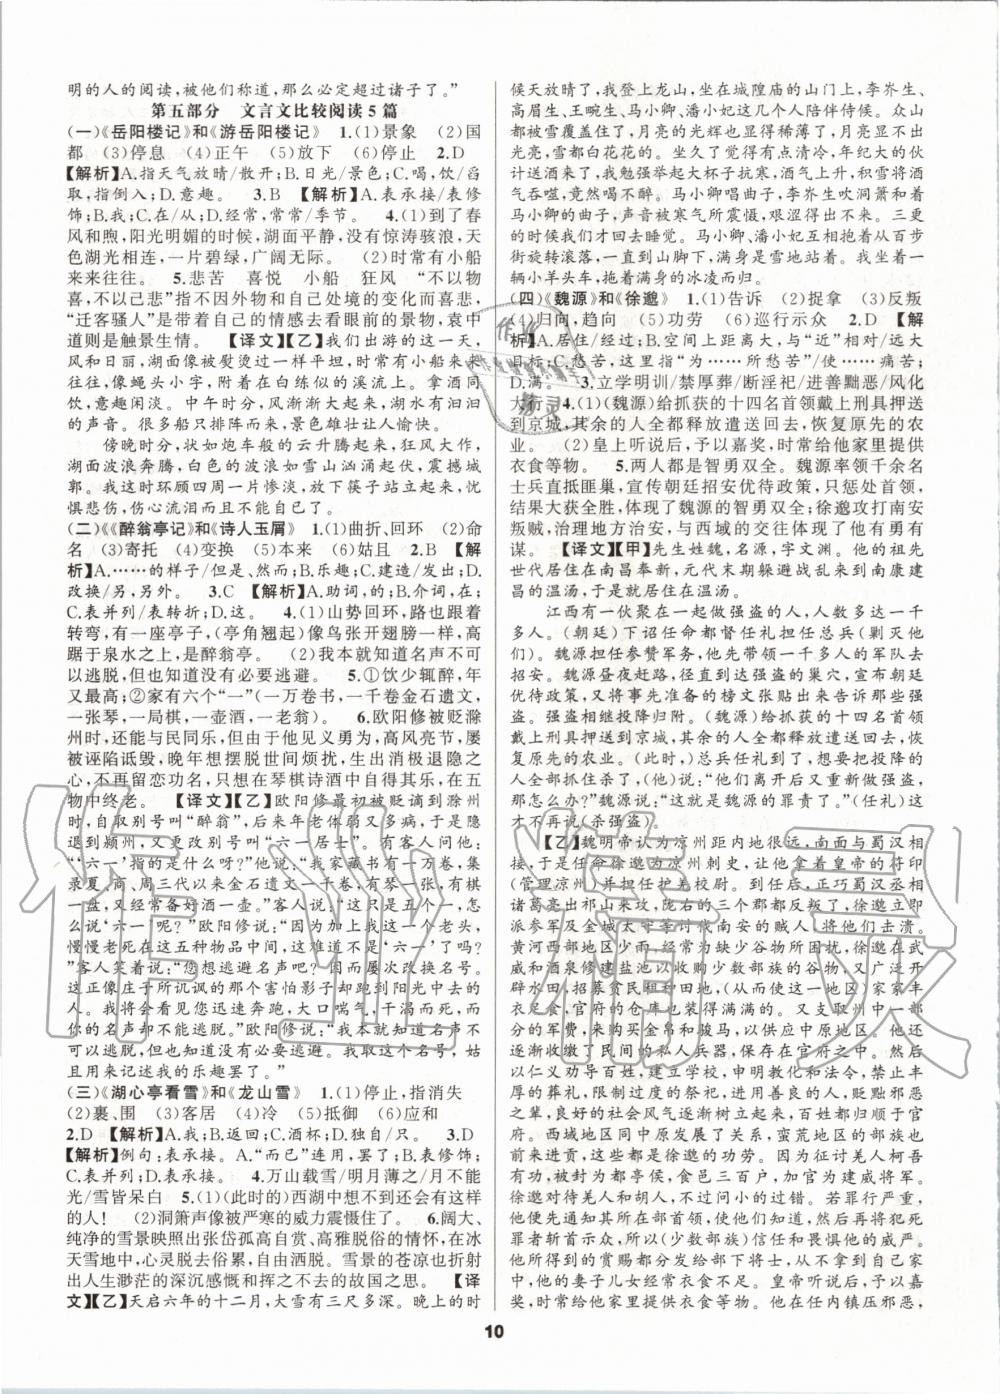 明的人的阅读,被他们称道,那么必定超过诸子了。”
第五部分 文言文比较阅读5篇
(一)《岳阳楼记》和《游岳阳楼记》 1.(1)景象 (2)国
都 (3)停息 (4)正午 (5)放下 (6)停止 2.D
【解析】A.指天气放晴/散开;B.日光/景象;C.喝,饮/舀
取,指倒入;D.意趣。 3.B 【解析】A.表承接/表修
饰;B.我;C.在/从;D.经常,常常/季节。 4.(1)到了春
风和煦,阳光明媚的时候,湖面平静,没有惊涛骇浪,天
色湖光相连,一片碧绿,广阔无际。 (2)时常有小船
来来往往。 5.悲苦 喜悦 小船 狂风 “不以物
喜,不以己悲”指不因外物和自己处境的变化而喜悲,
“迁客骚人”带着自己的情感去看眼前的景物,袁中
道则是触景生情。 【译文】【乙】我们出游的这一天,
风和日丽,湖面像被熨烫过一样平坦,时常有小船来来
往往,像蝇头小字,附着在白练似的溪流上。拿酒同
饮,意趣闲淡。中午时分,风渐渐大起来,湖水有汩汩
的声音。很多船只排阵而来,景色雄壮让人愉快。
傍晚时分,状如炮车般的云升腾起来,狂风大作,
湖面波浪奔腾,白色的波浪如雪山汹涌起伏,震撼城
郭。我这时环顾四周一片惨淡,放下筷子站立起来,忧
惧悲伤,伤心流泪而且不能自已了。
(二)《醉翁亭记》和《诗人玉屑》 1.(1)曲折、回环 (2)命
名 (3)寄托 (4)变换 (5)本来 (6)姑且 2.B 【解
析】A.……的样子/但是、然而;B.乐趣;C.建造/发出;D.
改换/另,另外。 3.C 【解析】A.助词,的;B.介词,在;
C.表并列/表转折;D.这。 4.(1)山势回环,路也跟着
转弯,有一座亭子,(亭角翘起)像鸟张开翅膀一样,高
踞于泉水之上,是醉翁亭。 (2)我本来就知道名声不可
以逃脱,但也知道没有必要去逃避。 5.①饮少辄醉,年
又最高;②家有六个“一”(一万卷书,一千卷金石遗文,
一张琴,一局棋,一壶酒,一老翁)。 6.欧阳修被贬滁
州时,还能与民同乐,但其因仗义勇为,高风亮节,屡
被诬陷诋毁,晚年想摆脱世间烦扰,生出退隐之
心,不再留恋功名,只想在琴棋诗酒中自得其乐,在五
物中终老。 【译文】【乙】欧阳修最初被贬谪到滁州
时,自取别号叫“醉翁”,后来年老体弱又多病,于是又
到颍州,又更改别号叫“六一居士”。有客人问他:
“‘六一’指的是什么呀?”他说:“我家藏书有一万卷,集
录夏、商、周三代以来金石遗文一千卷,有琴一张,有棋
一盘,又经常备好酒一壶。”客人说:“这只是五个一,怎
么说‘六一’呢?”欧阳修说:“加上我这一个老头,
慢慢老死在这五种物品中间,这难道不是‘六一’了吗?
”客人笑着说:“您想逃避名声吧?因而屡次改换名号。
这正像庄子所讥讽的那个害怕影子却跑到阳光中去的人
一样;我将会看见您迅速奔跑,大口喘气,干渴而死,而
你的名声却不能逃脱。”欧阳修说:“我本来就知道名声不
可以逃脱,也知道没有必要逃避。我取这个名号,姑
且用来记述我的乐趣罢了。”
(三)《湖心亭看雪》和《龙山雪》 1.(1)停止,指消失
(2)裹、围 (3)客居 (4)冷 (5)抵御 (6)应和
2.D 【解析】A.我;B.返回;C.酒杯;D.独自/只。 3.D
【解析】例句:表承接。A.“而已”连用,罢了;B.表修饰;
C.表并列;D.表承接。 4.万山载雪/明月薄之/月不能
光/雪皆呆白 5.(1)(此时的)西湖中想不到还会有这样
的人! (2)洞箫声像被严寒的威力震慑住了。 6.阔大、
纯净的雪景反映出张岱孤高自赏、高雅脱俗的情怀,在冰
天雪地中,心灵脱去俗累,升华超脱。雪景的苍凉也折射
出人生渺茫的深沉感慨和挥之不去的故国之思。 【译
文】【乙】天启六年的十二月,大雪有三尺多深。晚上的时
候天放晴了,我登上龙山,坐在城隍庙的山门上,李岕生、
高眉生、王畹生、马小卿、潘小妃这几个人陪伴侍候。众山
都被雪覆盖住了,月亮的光辉也显得很薄,月亮显不出
光亮,雪都白花花的。坐久了觉得有点清冷,年纪大的伙
计送酒来了,我勉强举起大杯子抗寒,酒气上升,积雪将酒
气吞噬,竟然喝不醉。马小卿唱曲子,李岕生吹洞箫和着
马小卿的曲子,声音被寒气所震慑,艰涩得出不来。三更
的时候我们才回去睡觉。马小卿、潘小妃互相抱着从百步
街旋转滚落,一直到山脚下,满身是雪地站立着。我坐着
一辆小羊头车,拖着满身的冰凌而归。
(四)《魏源》和《徐邈》 1.(1)告诉 (2)捉拿 (3)反叛
(4)归向,趋向 (5)功劳 (6)巡行示众 2.D 【解
析】A.居住/经过;B.空间上距离大,与“近”相对/远大
目标;C.愁苦,这里指“为……所愁苦”/使……痛苦;
D.满。 3.立学明训/禁厚葬/断淫祀/进善黜恶/风化
大行 4.(1)(魏源)给抓获的十四名首领戴上刑具押送
到京城,其余的人全都释放遣送回去,恢复原先的农
业。 (2)皇上听说后,予以嘉奖,时常给他家里提供
衣食等物。 5.两人都是智勇双全。魏源率领千余名
士兵直抵匪巢,宣传朝廷招安优待政策,只惩处首领,
结果大获全胜,体现了魏源的智勇双全;徐邈攻打南安
叛贼,治理地方治安,与西域的交往体现了他有勇有
谋。 【译文】【甲】先生姓魏,名源,字文渊。他的祖先
世代居住在南昌奉新,元代末期躲避战乱来到南康建
昌的温汤,于是就居住在温汤。
江西有一伙聚在一起做强盗的人,人数多达一千
多人。(朝廷)下诏任命都督任礼担任总兵(剿灭他
们)。魏源担任参赞军务,他率领一千多人的军队去
招安。魏源昼夜赶路,径直到达强盗的巢穴,宣布朝廷
优待政策,又将事先准备的榜文张贴出来告诉那些强
盗。强盗相继投降归附。(魏源)给抓获的十四名首领
戴上刑具押送到京城,其余的人全都释放遣送回去,恢
复原先的农业。(当时,)任礼到达后,想要把投降的一千
人全部抓住杀了,(他)说:“他们离开后又重新做强盗,
那怎么办?”魏源说:“这就是我魏源的罪责了。”(任礼)这
才不再说(杀强盗)。
【乙】魏明帝认为凉州距内地很远,南面与蜀汉相
接,于是任命徐邈为凉州刺史,让他拿着皇帝的符印
(管理凉州)并担任护羌校尉。到任后,正巧蜀汉丞相
诸葛亮出兵祁山来攻,陇右的三个郡都反叛了,徐邈立即
派参军及金城太守等讨伐南安叛贼,将他们击溃。
黄河西部地区少雨,经常为缺少谷物所困扰,徐邈在武
威和酒泉修建盐池以收购少数部族的谷物,又广泛开
辟水田,招募贫民租种田地,(从而使)这里家家丰
衣足食,官府的仓库也装得满满的。又支取州中一部
分的军费,来购买金帛和骏马,以供应中原地区。他还
逐渐收缴了民间的私人兵器,保存在官府之中。然后
以仁义劝导百姓,建立学校,申明教化和法令,禁止丰
厚的葬礼,限制过度的祭祀,进用善良的人,贬逐邪恶
之人,良好的社会风气逐渐树立起来,百姓都归向于官
府了。西域地区同中原发展了关系,蛮荒地区的部族也
前来进贡,这都是徐邈的功劳。因征讨羌人柯吾
有功,被封为都亭侯,食邑三百户,加官建威将军。徐
邈对待羌人和胡人,不过问小的过错。若罪行严重,
他便先通知其所在部首领,使他们知道,然后把应
处死的人斩首示众,所以(少数)部族都敬服他的威严。
他所得的赏赐都分发给部下将士,自己从不拿回家
中,他的妻子儿女经常衣食不足。皇帝听说后予以嘉
奖,时常给他家里提供衣食等物。他在任内镇压邪恶,
10